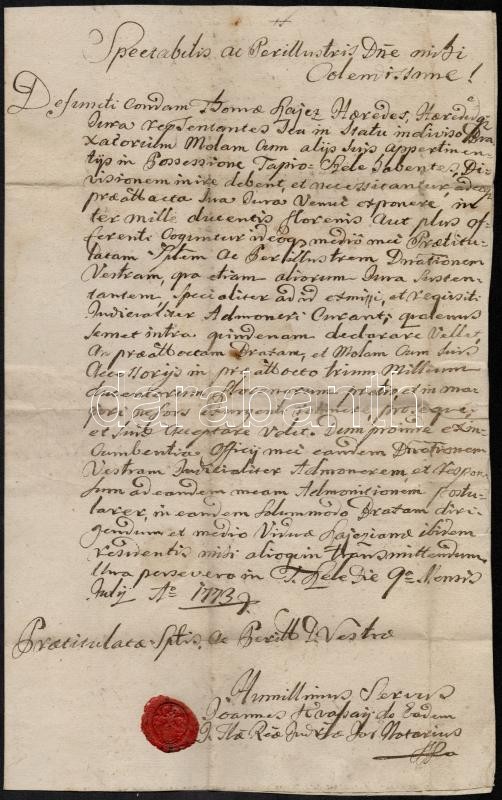 Spectabilis ac Perillustris Dne mihi
Colendissime!
Defuncti condam Thomæ Hajez Hæredes, Hæredumq
Jura repsentantes seu in Statu indiviso Bra
xatorium Molam Cum alijs suis appertinen
tijs in Possessione Tapio-Szele habentes, Di
visionem inire debent, et necessitantur, adeoq
præattacta sua Jura Venui exponere, in
ter mille ducentis florenis aut plus of
ferenti Coguntur ideoq medio mei Prætitu
latam Sptem ac Perillustrem Dnationem
Vestram, qua etiam aliorum Jura susten
tantem, specialiter ad id exmissi, et requisiti
Judicialiter Admoneri Curant; quatenus
semet intra quindenam declarare Vellet,
An præattactam Braxam, et Molam Cum suis
Accessorijs in præattacto trium Millium
ducentorum florenorum pretio, et in
et suis Acceptare Velit. Dum proinde exin
Cumbentia Officij mei eandem Dnationem
Vestram Judicialiter Admonerem, et respon
sum ad eandem meam Admonitionem postu
larem, in eandem solummodo Bratam diri
gendum et medio Viduæ Hajeziana ibidem
residentis mihi alioquin transmittendum
Una persevero in T. Szele Die 9a Mensis
Julij Ao 1773
Prætitulatæ Sptis, ac Perill D Vestræ
Humillimus Servus
Joannes Hvasaij de Eadem
Notarius
darabanth